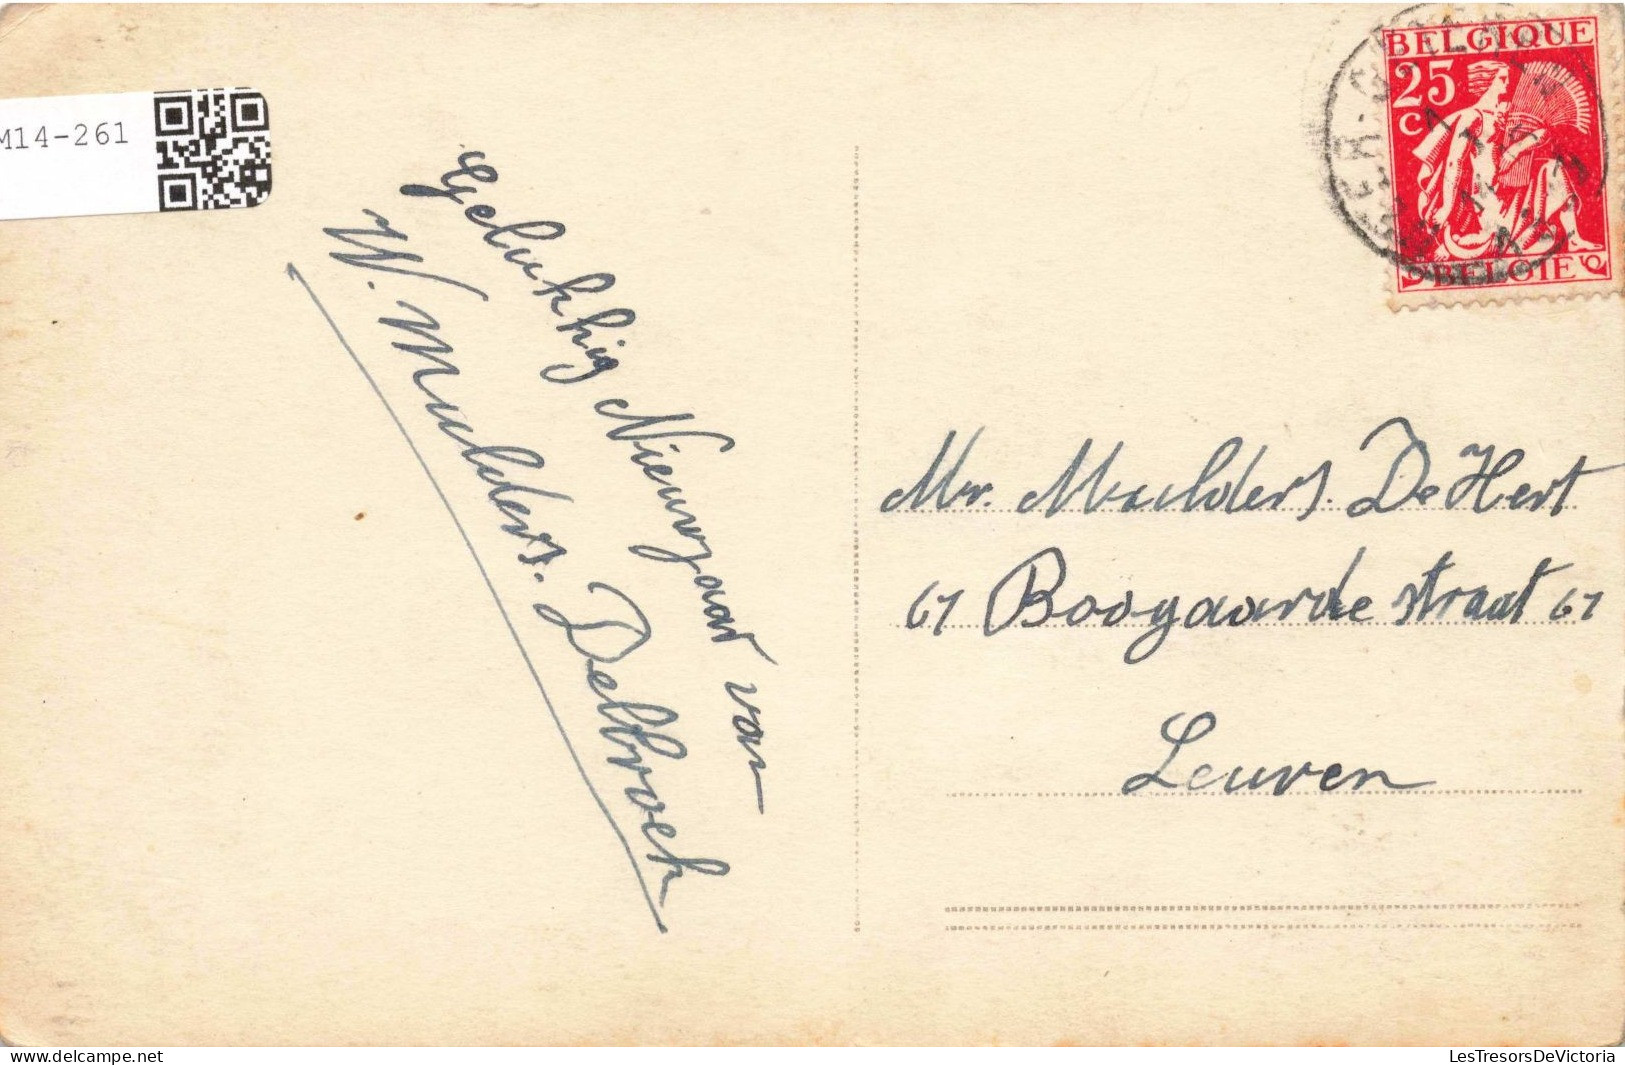 M14-261
BELGIQUE
25
C
BELGIE
Gelukkig Nieuwjaar van
W. Mulders. Delbroek
Mr. Mulders. De Hert
67 Boogaarde straat 67
Leuven
delcampe.net
LesTresorsDeVictoria